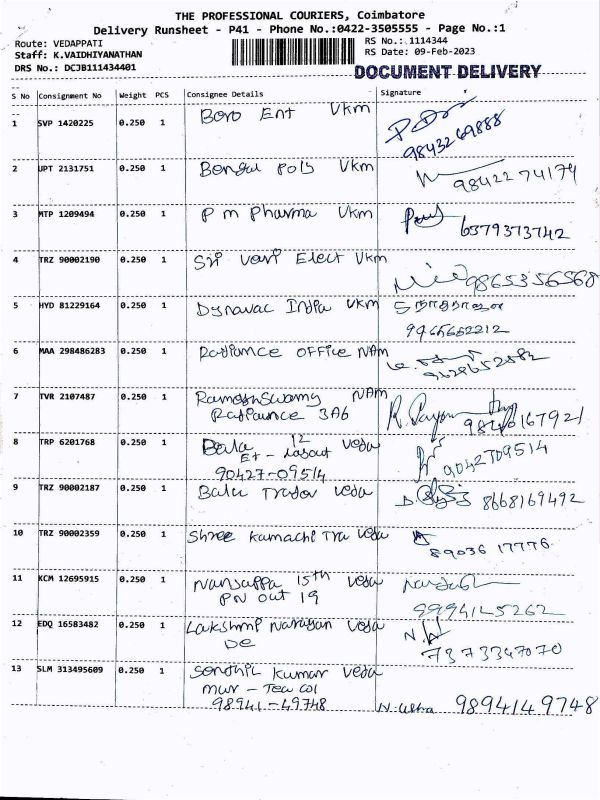 THE PROFESSIONAL COURIERS, Coimbatore
Delivery Runsheet - P41 - Phone No.:0422-3505555 - Page No.:1
Route: VEDAPPATI
Staff: K.VAIDHIYANATHAN
DRS No.: DCJB111434401
RS No.:1114344
RS Date: 09-Feb-2023
DOCUMENT DELIVERY
S No Consignment No Weight PCS Consignee Details Signature
1 SVP 1420225 0.250 1 Boro Ent Vkm
9843269888
2 JPT 2131751 0.250 1 Bengal Poly Vkm 98422 74174
3 MTP 1209494 0.250 1 P m Pharma Vkm 6379373742
4 TRZ 90002190 0.250 1 Sri Vari Elect Vkm 9865356568
5 HYD 81229164 0.250 1 Dynavac India Vkm
6 MAA 298486283 0.250 1 Radiance OFFICE NAm
7 TVR 2107487 0.250 1 Ramashswamy NAm
Radiance 3A6
8 TRP 6201768 0.250 1 Bala 12 Veda
Et - Layout 9042709514
90427-09514
9 TRZ 90002187 0.250 1 Balu Trader Veda 8668169492
10 TRZ 90002359 0.250 1 Shree Kamachi Tra Veda
89036 17776
11 KCM 12695915 0.250 1 Nansappa 15th Veda
PN out 19
9994145262
12 EDQ 16583482 0.250 1 Lakshmi Narayan Veda
De 7373347070
13 SLM 313495609 0.250 1 Senthil Kumar Veda
Mur - Tea Col
98941-49748 9894149748